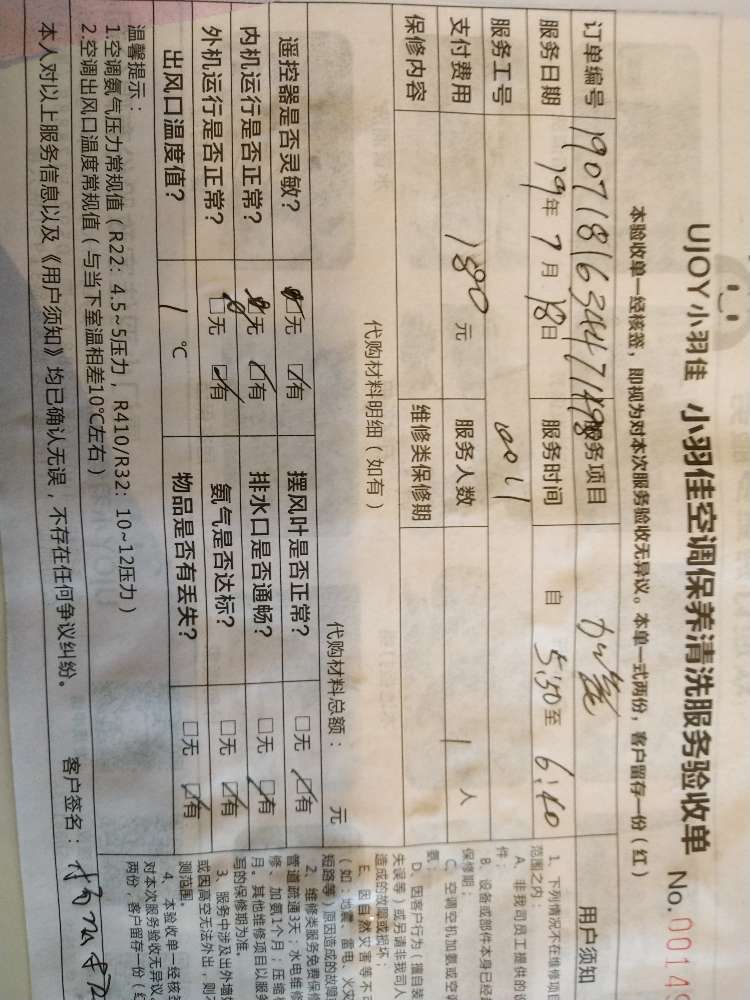 UJOY小羽佳 小羽佳空调保养清洗服务验收单 No.0014
本验收单一经核签，即视为对本次服务验收无异议。本单一式两份，客户留存一份（红）
订单编号 服务项目
服务日期 19年7月18日 服务时间 自 5:50至 6:40
服务工号 0011
支付费用 180 元 服务人数 1 人
保修内容 维修类保修期
代购材料明细（如有）
代购材料总额： 元
遥控器是否灵敏？ □无 ☑有 摆风叶是否正常？ □无 ☑有
内机运行是否正常？ □无 ☑有 排水口是否通畅？ □无 ☑有
外机运行是否正常？ □无 ☑有 氨气是否达标？ □无 ☑有
出风口温度值？ / ℃ 物品是否有丢失？ □无 ☑有
温馨提示：
1.空调氨气压力常规值（R22: 4.5~5压力，R410/R32: 10~12压力）
2.空调出风口温度常规值（与当下室温相差10℃左右）
本人对以上服务信息以及《用户须知》均已确认无误，不存在任何争议纠纷。 客户签名：
用户须知
1、下列情况不在维修项目
范围之内：
A、非我司员工提供的
件；
B、设备或部件本身已经
保修期；
C、空调空机加氨或空
氨；
D、因客户行为（擅自装
失误等）或另请非我司人
造成的故障或损坏；
E、因自然灾害等不可
（如：地震、雷电、火灾
短路等）原因造成的故障
2、维修类服务免费保修
管道疏通3天；水电维修
修、加氨1个月；压缩
月。其他维修项目以服务
写的保修期为准。
3、服务中涉及出外墙
或因高空无法外出，则
测范围。
4、本验收单一经核签
对本次服务验收无异议
两份，客户留存一份（